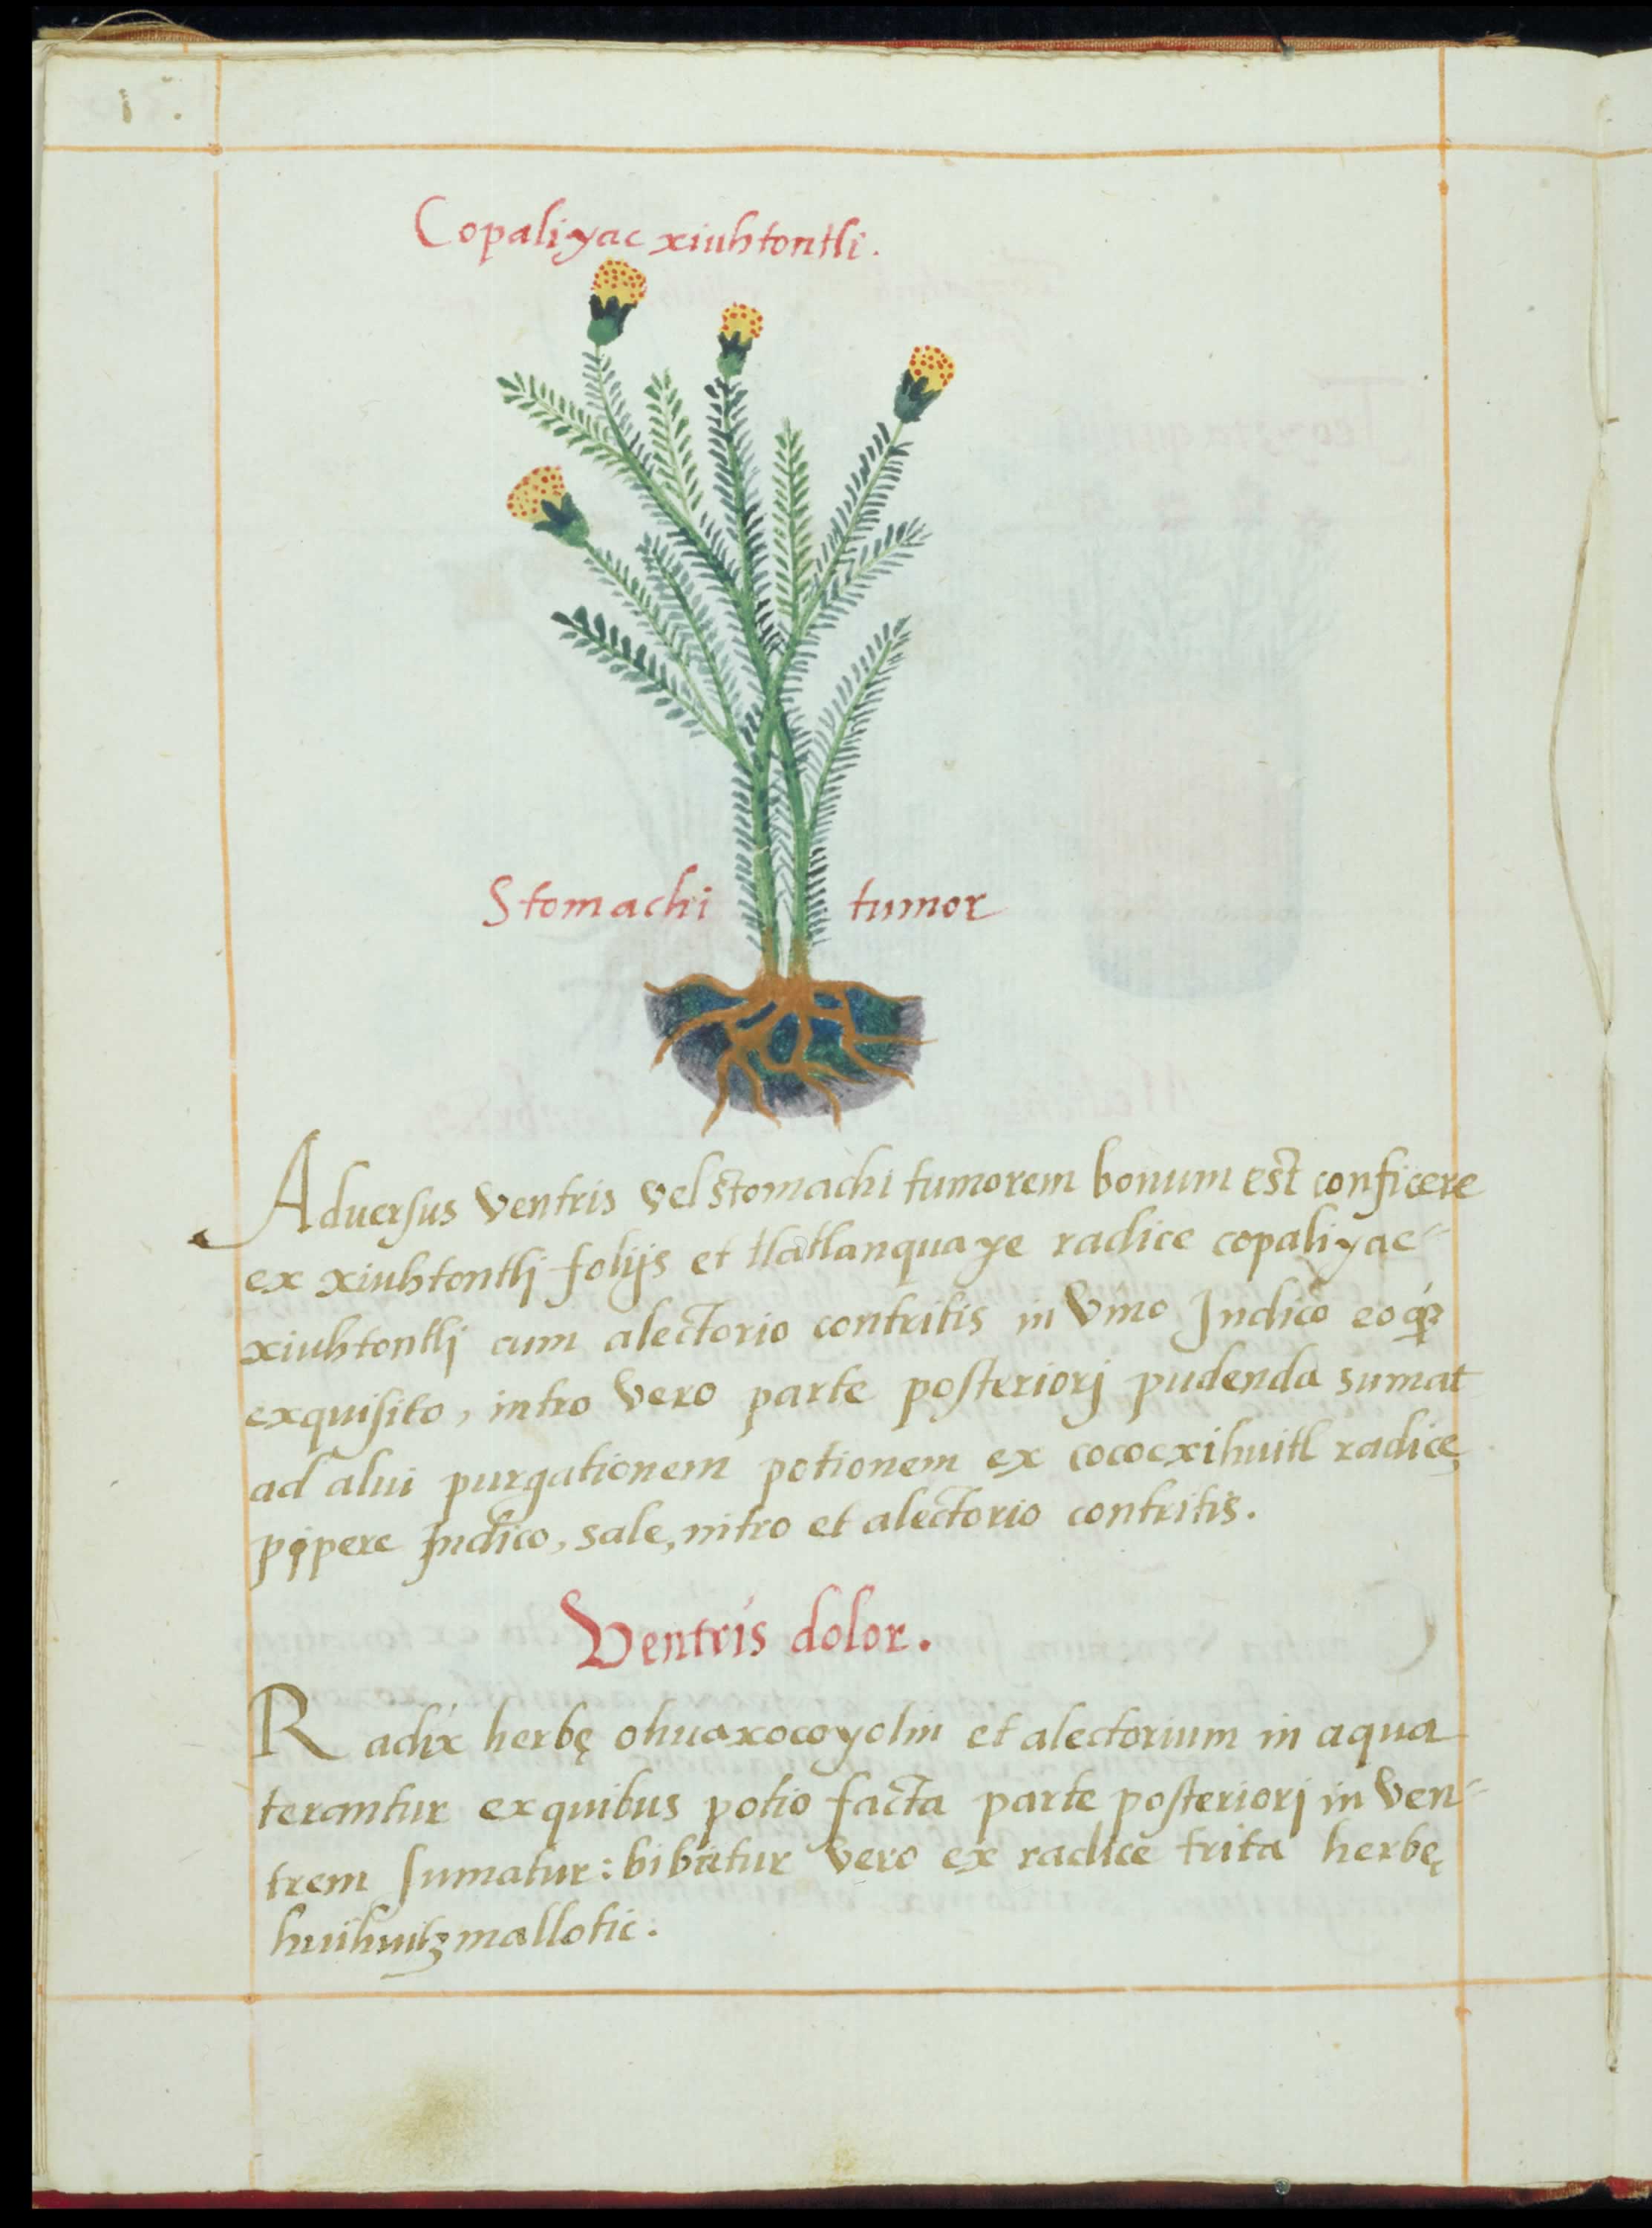 i .
Copaliyac xiuhtontli.
Stomachi tumor
Aduersus ventris vel stomachi tumorem bonum est conficere
ex xiuhtontlj folijs et tlatlanquaye radice copaliyac=
xiuhtontlj cum alectorio contritis in vino Jndico eoq́ꝫ
exquisito, intro vero parte posteriorj pudenda sumat
ad alui purgationem potionem ex cococxihuitl radice,
pipere Jndico, sale, nitro et alectorio contritis.
Ventris dolor.
Radix herbę ohuaxocoyolin et alectorium in aqua
terantur ex quibus potio facta parte posteriorj in ven=
trem sumatur: bibatur vero ex radice trita herbę
huihuitzmallotic.